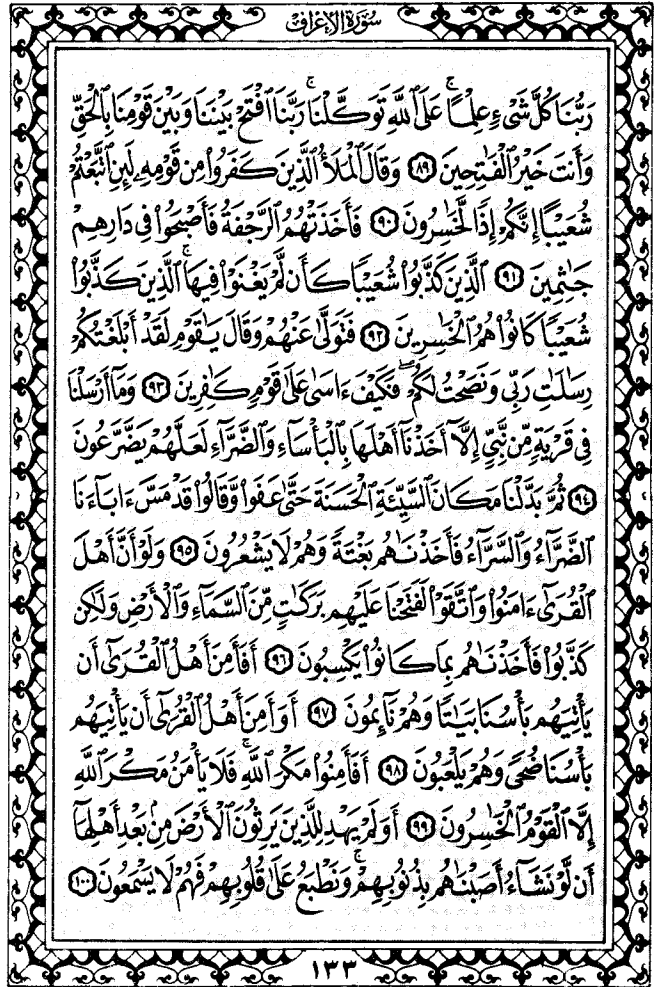 سُورَةُ الْأَعْرَافِ
رَبُّنَا كُلَّ شَىْءٍ عِلْمًا ۚ عَلَى ٱللَّهِ تَوَكَّلْنَا ۚ رَبَّنَا ٱفْتَحْ بَيْنَنَا وَبَيْنَ قَوْمِنَا بِٱلْحَقِّ
وَأَنتَ خَيْرُ ٱلْفَـٰتِحِينَ ٨٩ وَقَالَ ٱلْمَلَأُ ٱلَّذِينَ كَفَرُوا۟ مِن قَوْمِهِۦ لَئِنِ ٱتَّبَعْتُمْ
شُعَيْبًا إِنَّكُمْ إِذًا لَّخَـٰسِرُونَ ٩٠ فَأَخَذَتْهُمُ ٱلرَّجْفَةُ فَأَصْبَحُوا۟ فِى دَارِهِمْ
جَـٰثِمِينَ ٩١ ٱلَّذِينَ كَذَّبُوا۟ شُعَيْبًا كَأَن لَّمْ يَغْنَوْا۟ فِيهَا ۚ ٱلَّذِينَ كَذَّبُوا۟
شُعَيْبًا كَانُوا۟ هُمُ ٱلْخَـٰسِرِينَ ٩٢ فَتَوَلَّىٰ عَنْهُمْ وَقَالَ يَـٰقَوْمِ لَقَدْ أَبْلَغْتُكُمْ
رِسَـٰلَـٰتِ رَبِّى وَنَصَحْتُ لَكُمْ ۖ فَكَيْفَ ءَاسَىٰ عَلَىٰ قَوْمٍ كَـٰفِرِينَ ٩٣ وَمَآ أَرْسَلْنَا
فِى قَرْيَةٍ مِّن نَّبِىٍّ إِلَّآ أَخَذْنَآ أَهْلَهَا بِٱلْبَأْسَآءِ وَٱلضَّرَّآءِ لَعَلَّهُمْ يَضَّرَّعُونَ
٩٤ ثُمَّ بَدَّلْنَا مَكَانَ ٱلسَّيِّئَةِ ٱلْحَسَنَةَ حَتَّىٰ عَفَوا۟ وَّقَالُوا۟ قَدْ مَسَّ ءَابَآءَنَا
ٱلضَّرَّآءُ وَٱلسَّرَّآءُ فَأَخَذْنَـٰهُم بَغْتَةً وَهُمْ لَا يَشْعُرُونَ ٩٥ وَلَوْ أَنَّ أَهْلَ
ٱلْقُرَىٰٓ ءَامَنُوا۟ وَٱتَّقَوْا۟ لَفَتَحْنَا عَلَيْهِم بَرَكَـٰتٍ مِّنَ ٱلسَّمَآءِ وَٱلْأَرْضِ وَلَـٰكِن
كَذَّبُوا۟ فَأَخَذْنَـٰهُم بِمَا كَانُوا۟ يَكْسِبُونَ ٩٦ أَفَأَمِنَ أَهْلُ ٱلْقُرَىٰٓ أَن
يَأْتِيَهُم بَأْسُنَا بَيَـٰتًا وَهُمْ نَآئِمُونَ ٩٧ أَوَأَمِنَ أَهْلُ ٱلْقُرَىٰٓ أَن يَأْتِيَهُم
بَأْسُنَا ضُحًى وَهُمْ يَلْعَبُونَ ٩٨ أَفَأَمِنُوا۟ مَكْرَ ٱللَّهِ ۚ فَلَا يَأْمَنُ مَكْرَ ٱللَّهِ
إِلَّا ٱلْقَوْمُ ٱلْخَـٰسِرُونَ ٩٩ أَوَلَمْ يَهْدِ لِلَّذِينَ يَرِثُونَ ٱلْأَرْضَ مِنۢ بَعْدِ أَهْلِهَآ
أَن لَّوْ نَشَآءُ أَصَبْنَـٰهُم بِذُنُوبِهِمْ ۚ وَنَطْبَعُ عَلَىٰ قُلُوبِهِمْ فَهُمْ لَا يَسْمَعُونَ ١٠٠
١٣٣